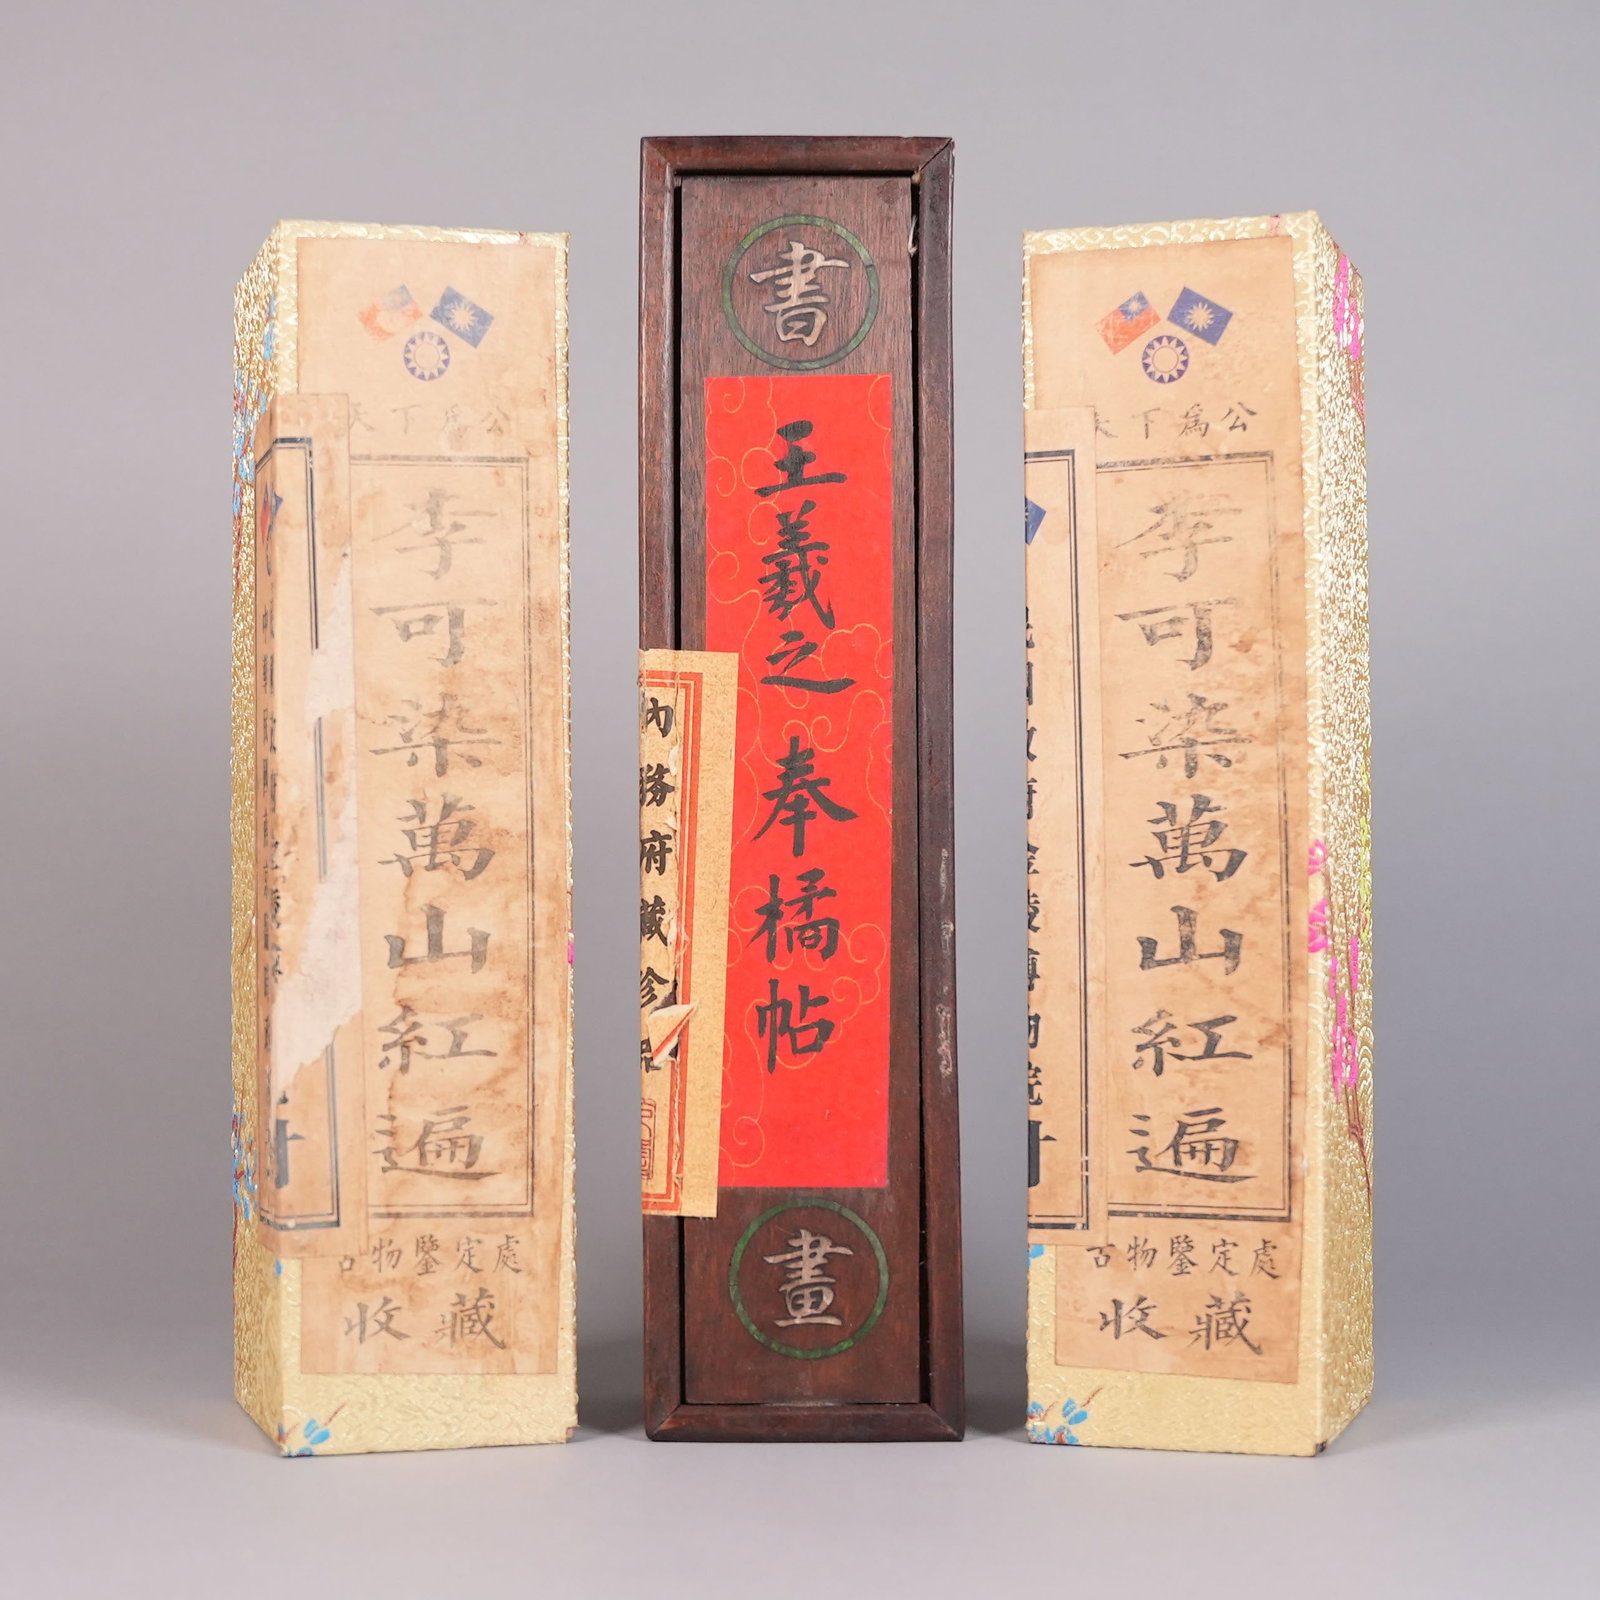 天下為公
李可染萬山紅遍
古物鑒定處
收藏
書
王羲之 奉橘帖
畫
內務府藏珍品
天下為公
李可染萬山紅遍
古物鑒定處
收藏